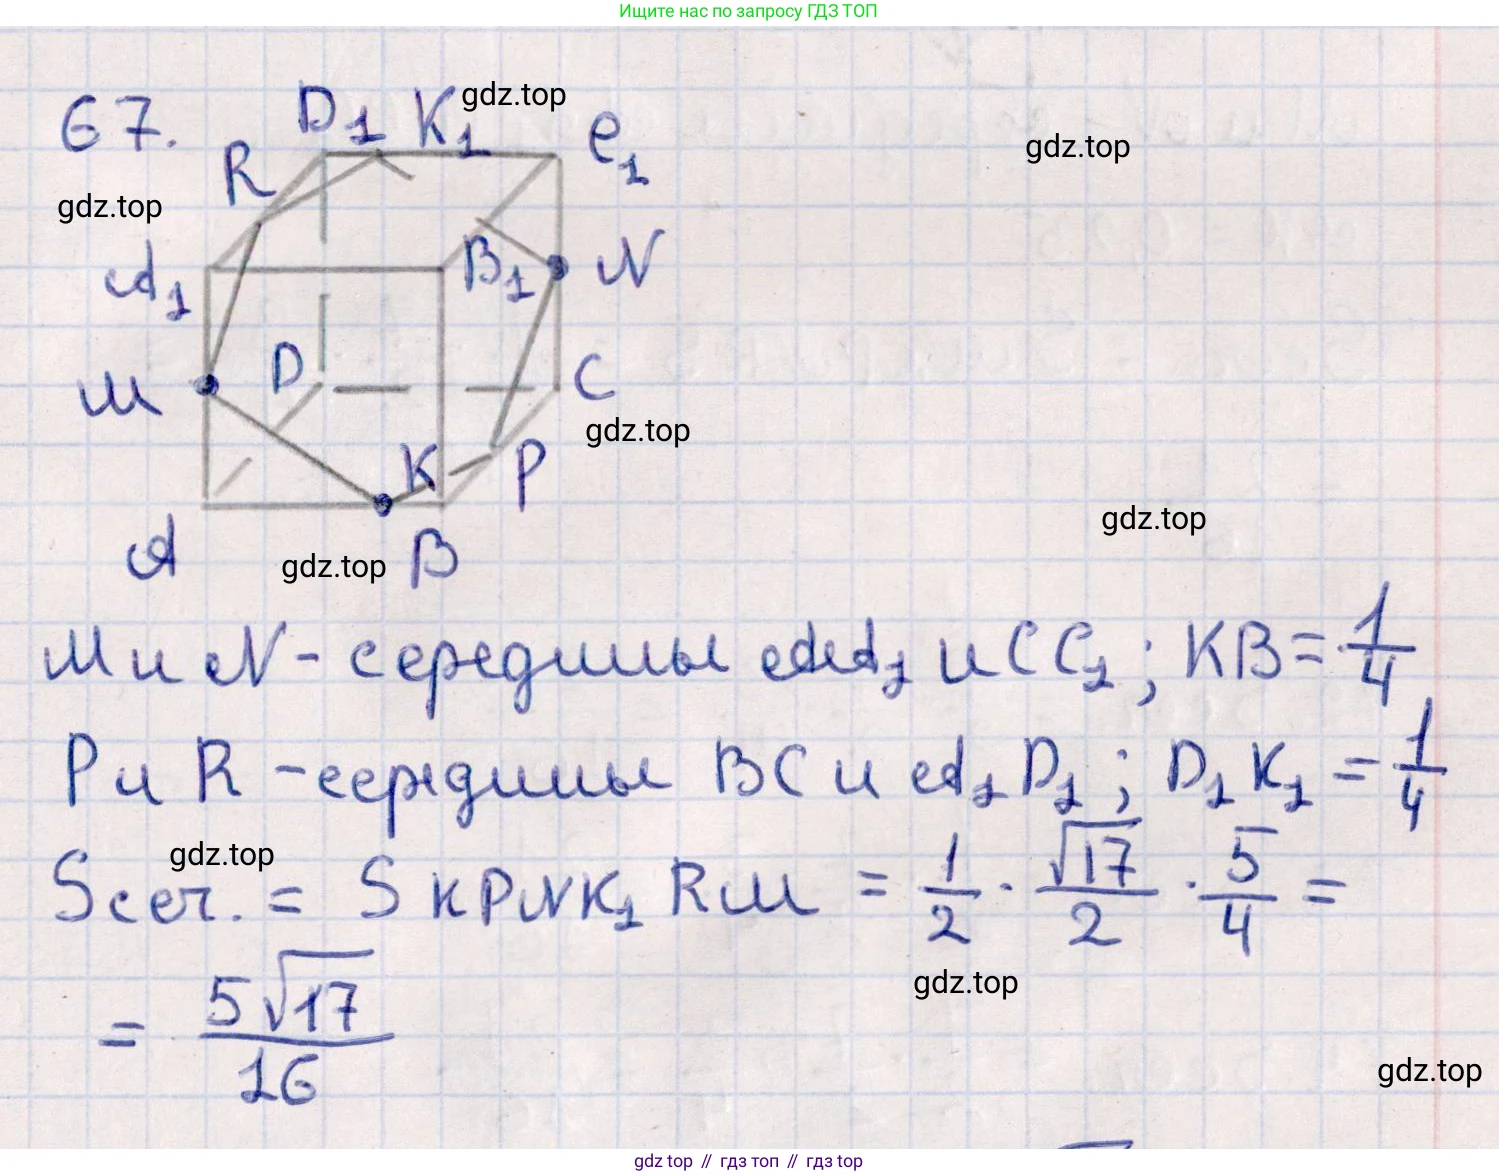 Ищите нас по запросу ГДЗ ТОП
67.
D₁ K₁ gdz.top C₁
gdz.top
R
gdz.top
A₁ B₁ N
M D C
gdz.top
K P
gdz.top
A gdz.top B
M и N - середины AA₁ и CC₁; KB = 1/4
P и R - середины BC и A₁D₁; D₁K₁ = 1/4
gdz.top
Sсеч. = S KPNK₁RM = 1/2 · √17/2 · 5/4 =
gdz.top
= 5√17/16
gdz.top
gdz top // гдз топ // gdz top